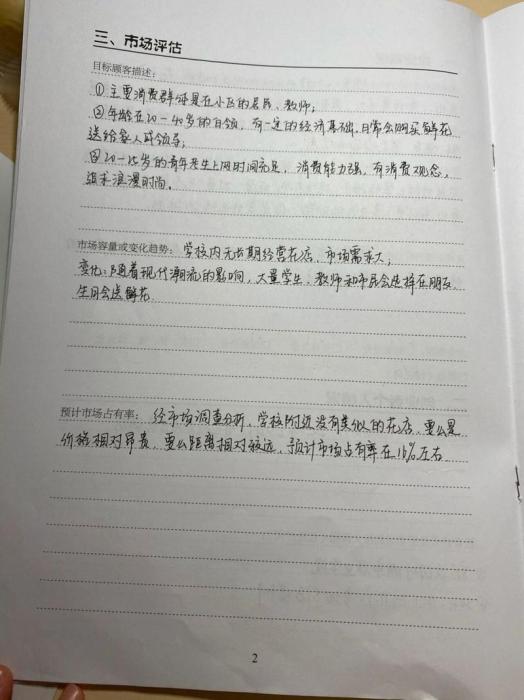 三、市场评估
目标顾客描述：
①主要消费群体是在小区的居民、教师；
②年龄在20-40岁的白领，有一定的经济基础，日常会购买鲜花
送给家人或领导；
③20-25岁的青年学生上网时间充足，消费能力强，有消费观念，
追求浪漫时尚。
市场容量或变化趋势：学校内无长期经营花店，市场需求大，
变化：随着现代潮流的影响，大量学生、教师和市民会选择在朋友
生日会送鲜花
预计市场占有率：经市场调查分析，学校附近没有类似的花店，要么是
价格相对昂贵，要么距离相对较远，预计市场占有率在16%左右
2